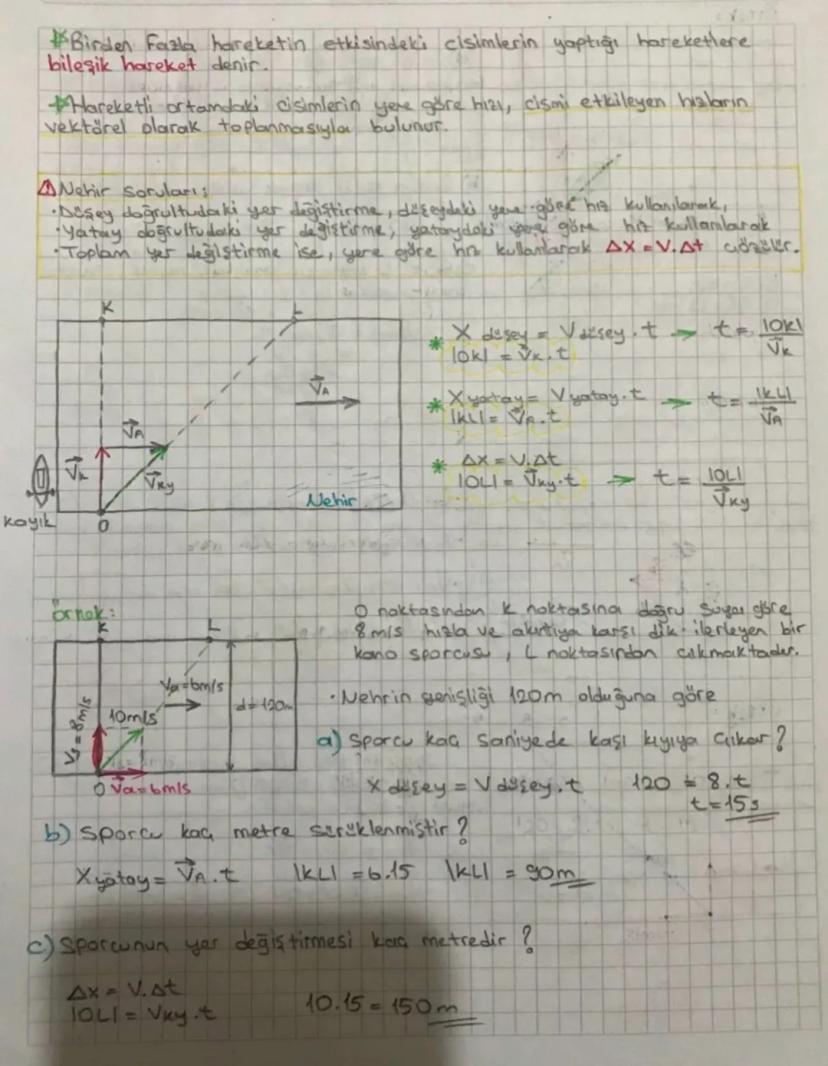 *Birden Fazla hareketin etkisindeki cisimlerin yaptığı hareketlere
bileşik hareket denir.
*Hareketli ortamdaki cisimlerin yere göre hızı, cismi etkileyen hızların
vektörel olarak toplanmasıyla bulunur.
⚠Nehir Soruları:
•Düşey doğrultudaki yer değiştirme, düşeydeki yere göre hız kullanılarak,
•Yatay doğrultudaki yer değiştirme, yataydaki yere göre hız kullanılarak
•Toplam yer değiştirme ise, yere göre hız kullanılarak ΔX = V.Δt çözülür.
K L
V⃗A
V⃗A
V⃗K
V⃗Ky
Nehir
kayık
O
* X düşey = V düşey . t → t = |OK| / V⃗K
|OK| = V⃗K . t
* X yatay = V yatay . t → t = |KL| / V⃗A
|KL| = V⃗A . t
* ΔX = V.Δt
|OL| = V⃗Ky . t → t = |OL| / V⃗Ky
örnek:
K L
Va=6m/s
10m/s
d=120m
= 8m/s
O V⃗a=6m/s
O noktasından K noktasına doğru suya göre
8 m/s hızla ve akıntıya karşı dik ilerleyen bir
kano sporcusu, L noktasından çıkmaktadır.
•Nehrin genişliği 120m olduğuna göre
a) Sporcu kaç saniyede kaşı kıyıya çıkar?
X düşey = V düşey . t 120 = 8.t
t = 15s
b) Sporcu kaç metre sürüklenmiştir?
X yatay = V⃗A . t |KL| = 6.15 |KL| = 90m
c) Sporcunun yer değiştirmesi kaç metredir?
ΔX = V.Δt
|OL| = VKy . t 10.15 = 150m